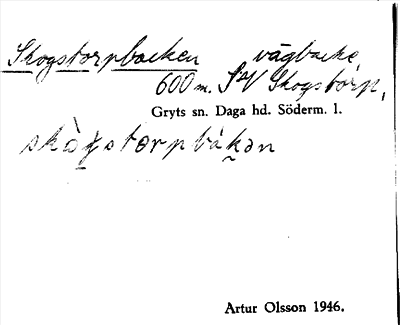 Skogstorpbacken vägbacke
600 m. SV Skogstorp,
Gryts sn. Daga hd. Söderm. l.
skògstorpbákən
Artur Olsson 1946.